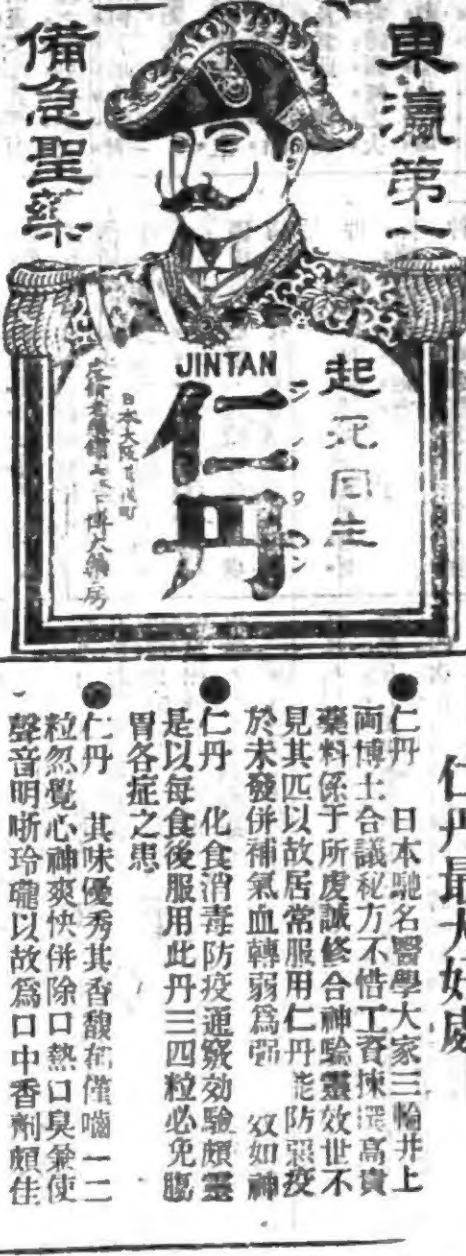 東瀛第一
備急聖藥
起死回生
JINTAN
仁丹
ジンタン
日本大阪
博大藥房
仁丹最大好處
●仁丹 日本馳名醫學大家三輪井上
両博士合議秘方不惜工資揀選高貴
藥料係于所虔誠修合神驗靈效世不
見其匹以故居常服用仁丹能防惡疫
於未發併補氣血轉弱爲强 效如神
●仁丹 化食消毒防疫通竅効驗頗靈
是以每食後服用此丹三四粒必免腸
胃各症之患
●仁丹 其味優秀其香馥
僅嚙一二
粒忽覺心神爽快併除口熱口臭兼使
聲音明晰玲瓏以故爲口中香劑頗佳